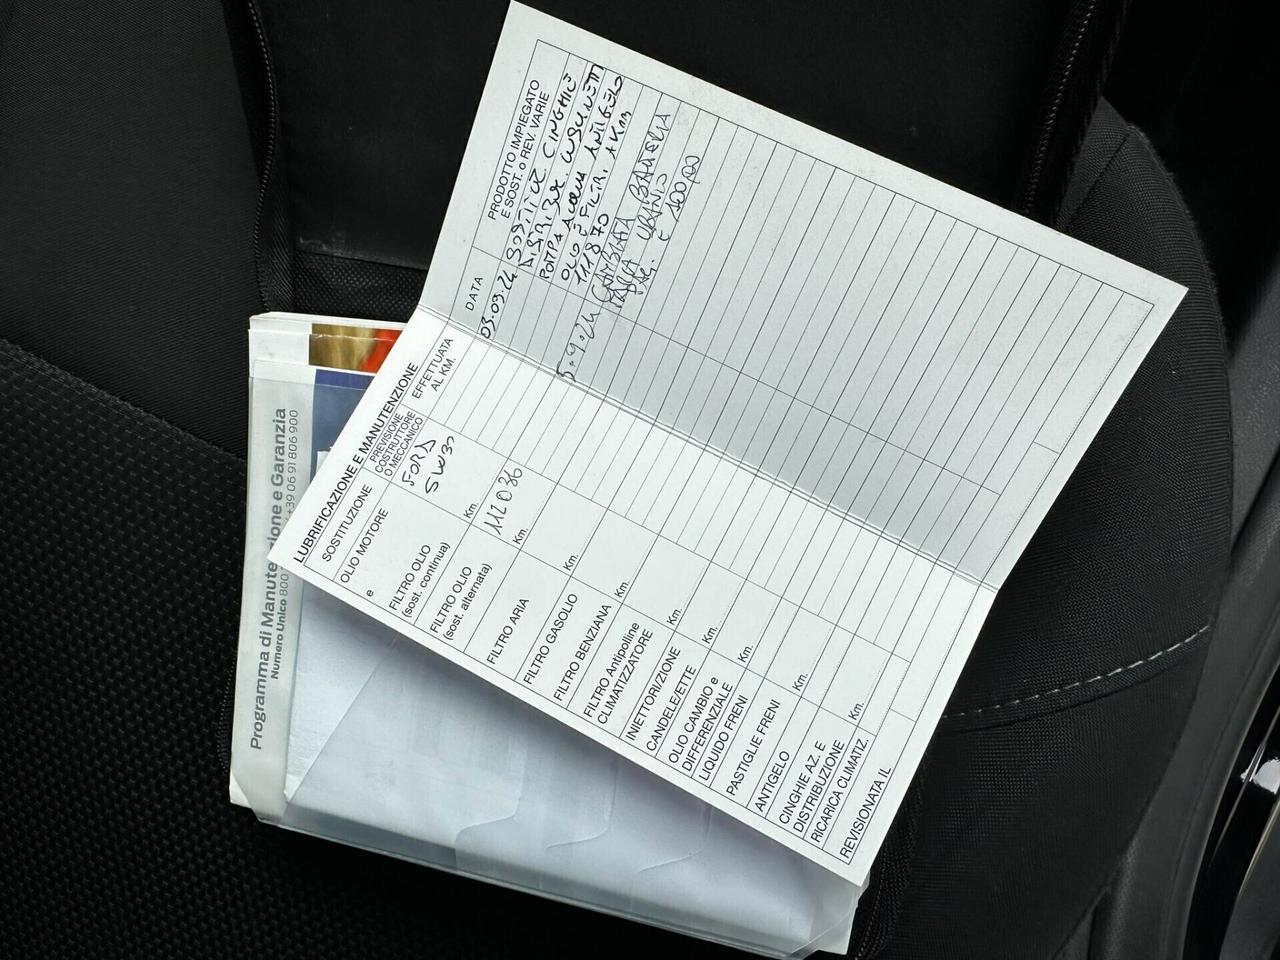 LUBRIFICAZIONE E MANUTENZIONE
SOSTITUZIONE
PREVISIONE
COSTRUTTORE
O MECCANICO
EFFETTUATA
AL KM.
DATA
PRODOTTO IMPIEGATO
E SOST. o REV. VARIE
OLIO MOTORE
e
FORD
5W30
FILTRO OLIO
(sost. continua)
Km.
FILTRO OLIO
(sost. alternata)
112036
Km.
FILTRO ARIA
Km.
FILTRO GASOLIO
FILTRO BENZIANA
Km.
FILTRO Antipolline
CLIMATIZZATORE
Km.
INIETTORI/ZIONE
CANDELE/ETTE
Km.
OLIO CAMBIO e
DIFFERENZIALE
LIQUIDO FRENI
Km.
PASTIGLIE FRENI
ANTIGELO
Km.
CINGHIE AZ. E
DISTRIBUZIONE
RICARICA CLIMATIZ.
Km.
REVISIONATA IL
03.09.24 SOSTITUZ CINGHIE
DISTRIBUZ.
POMPA ACQUA
OLIO E FILTRI ANTIGELO
111870 A KM
5.9.24 CAMBIATA BATTERIA
PAG.
€ 100,00
Programma di Manutenzione e Garanzia
Numero Unico 800
+39 06 91 806 900